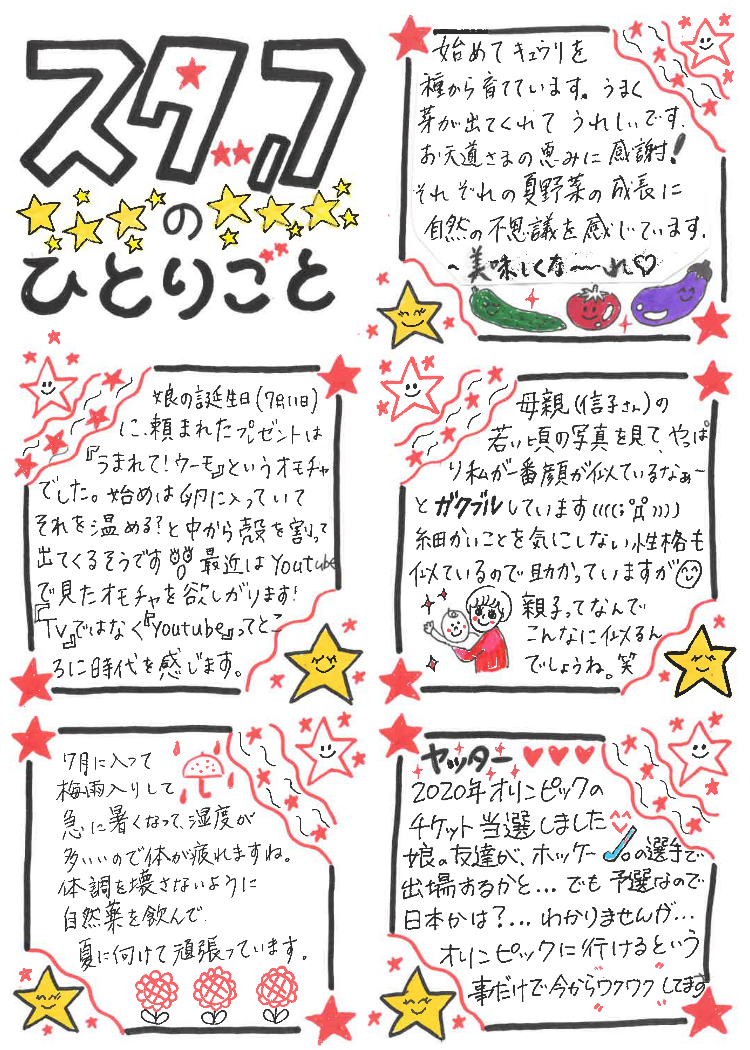 スタッフ
の
ひとりごと
始めてキュウリを
種から育てています。うまく
芽が出てくれて うれしいです.
お天道さまの恵みに感謝!
それぞれの夏野菜の成長に
自然の不思議を感じています.
~美味しくな~~れ♡
娘の誕生日(7月11日)
に、頼まれたプレゼントは
『うまれて!ウーモ』というオモチャ
でした。始めは卵に入っていて
それを温める?と中から殻を割って
出てくるそうです 最近はYoutube
で見たオモチャを欲しがります!
『TV』ではなく『Youtube』ってとこ
ろに時代を感じます。
母親(信子さん)の
若い頃の写真を見て、やっぱ
り私が一番顔が似ているなぁー
とガクブルしています((((;゚Д゚))))
細かいことを気にしない性格も
似ているので助かっていますが
親子ってなんで
こんなに似るん
でしょうね。笑
7月に入って
梅雨入りして
急に暑くなって、湿度が
多いいので体が疲れますね。
体調を壊さないように
自然薬を飲んで
夏に向けて頑張っています。
ヤッター
2020年オリンピックの
チケット当選しました
娘の友達が、ホッケーの選手で
出場するかと...でも予選なので
日本かは?...わかりませんが...
オリンピックに行けるという
事だけで今からワクワクしてます